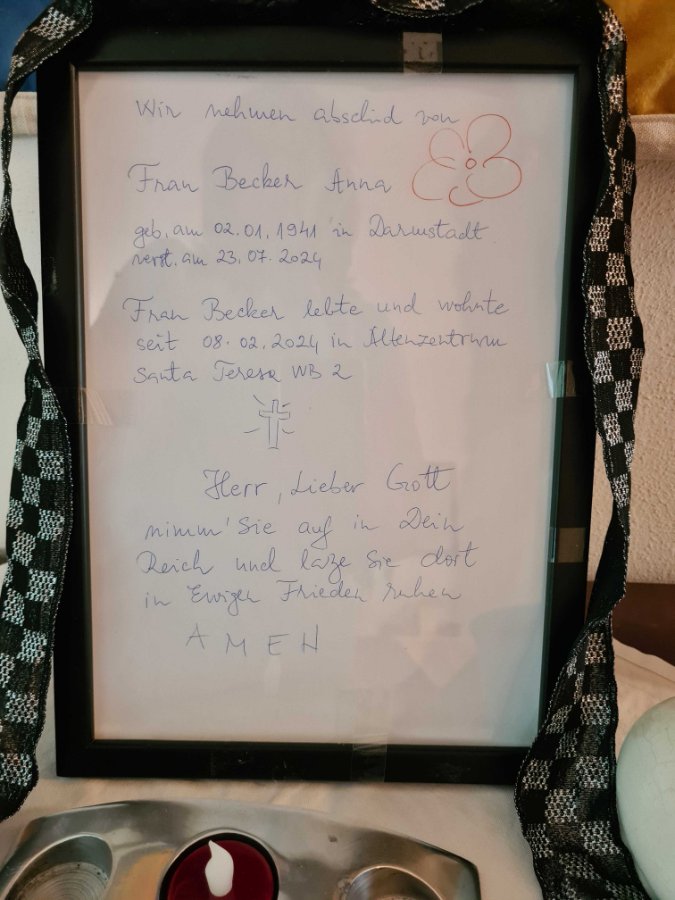 Wir nehmen abschid von
Frau Becker Anna
geb. am 02.01.1941 in Darmstadt
verst. am 23.07.2024
Frau Becker lebte und wohnte
seit 08.02.2024 in Altenzentrum
Santa Teresa WB 2
Herr, Lieber Gott
nimm' Sie auf in Dein
Reich und laze Sie dort
in Ewigen Frieden ruhen
AMEN